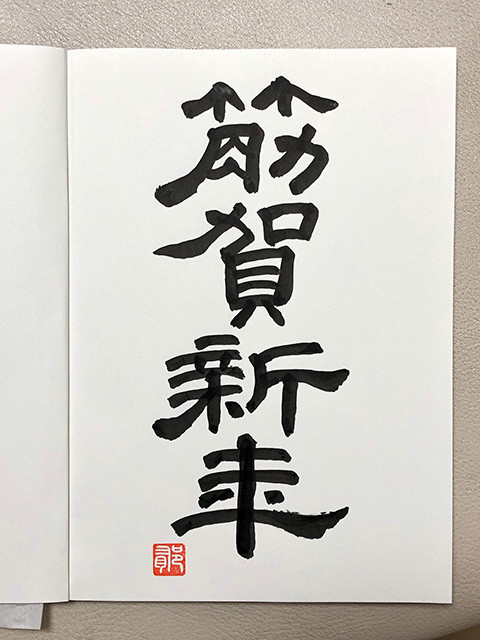 筋賀新年